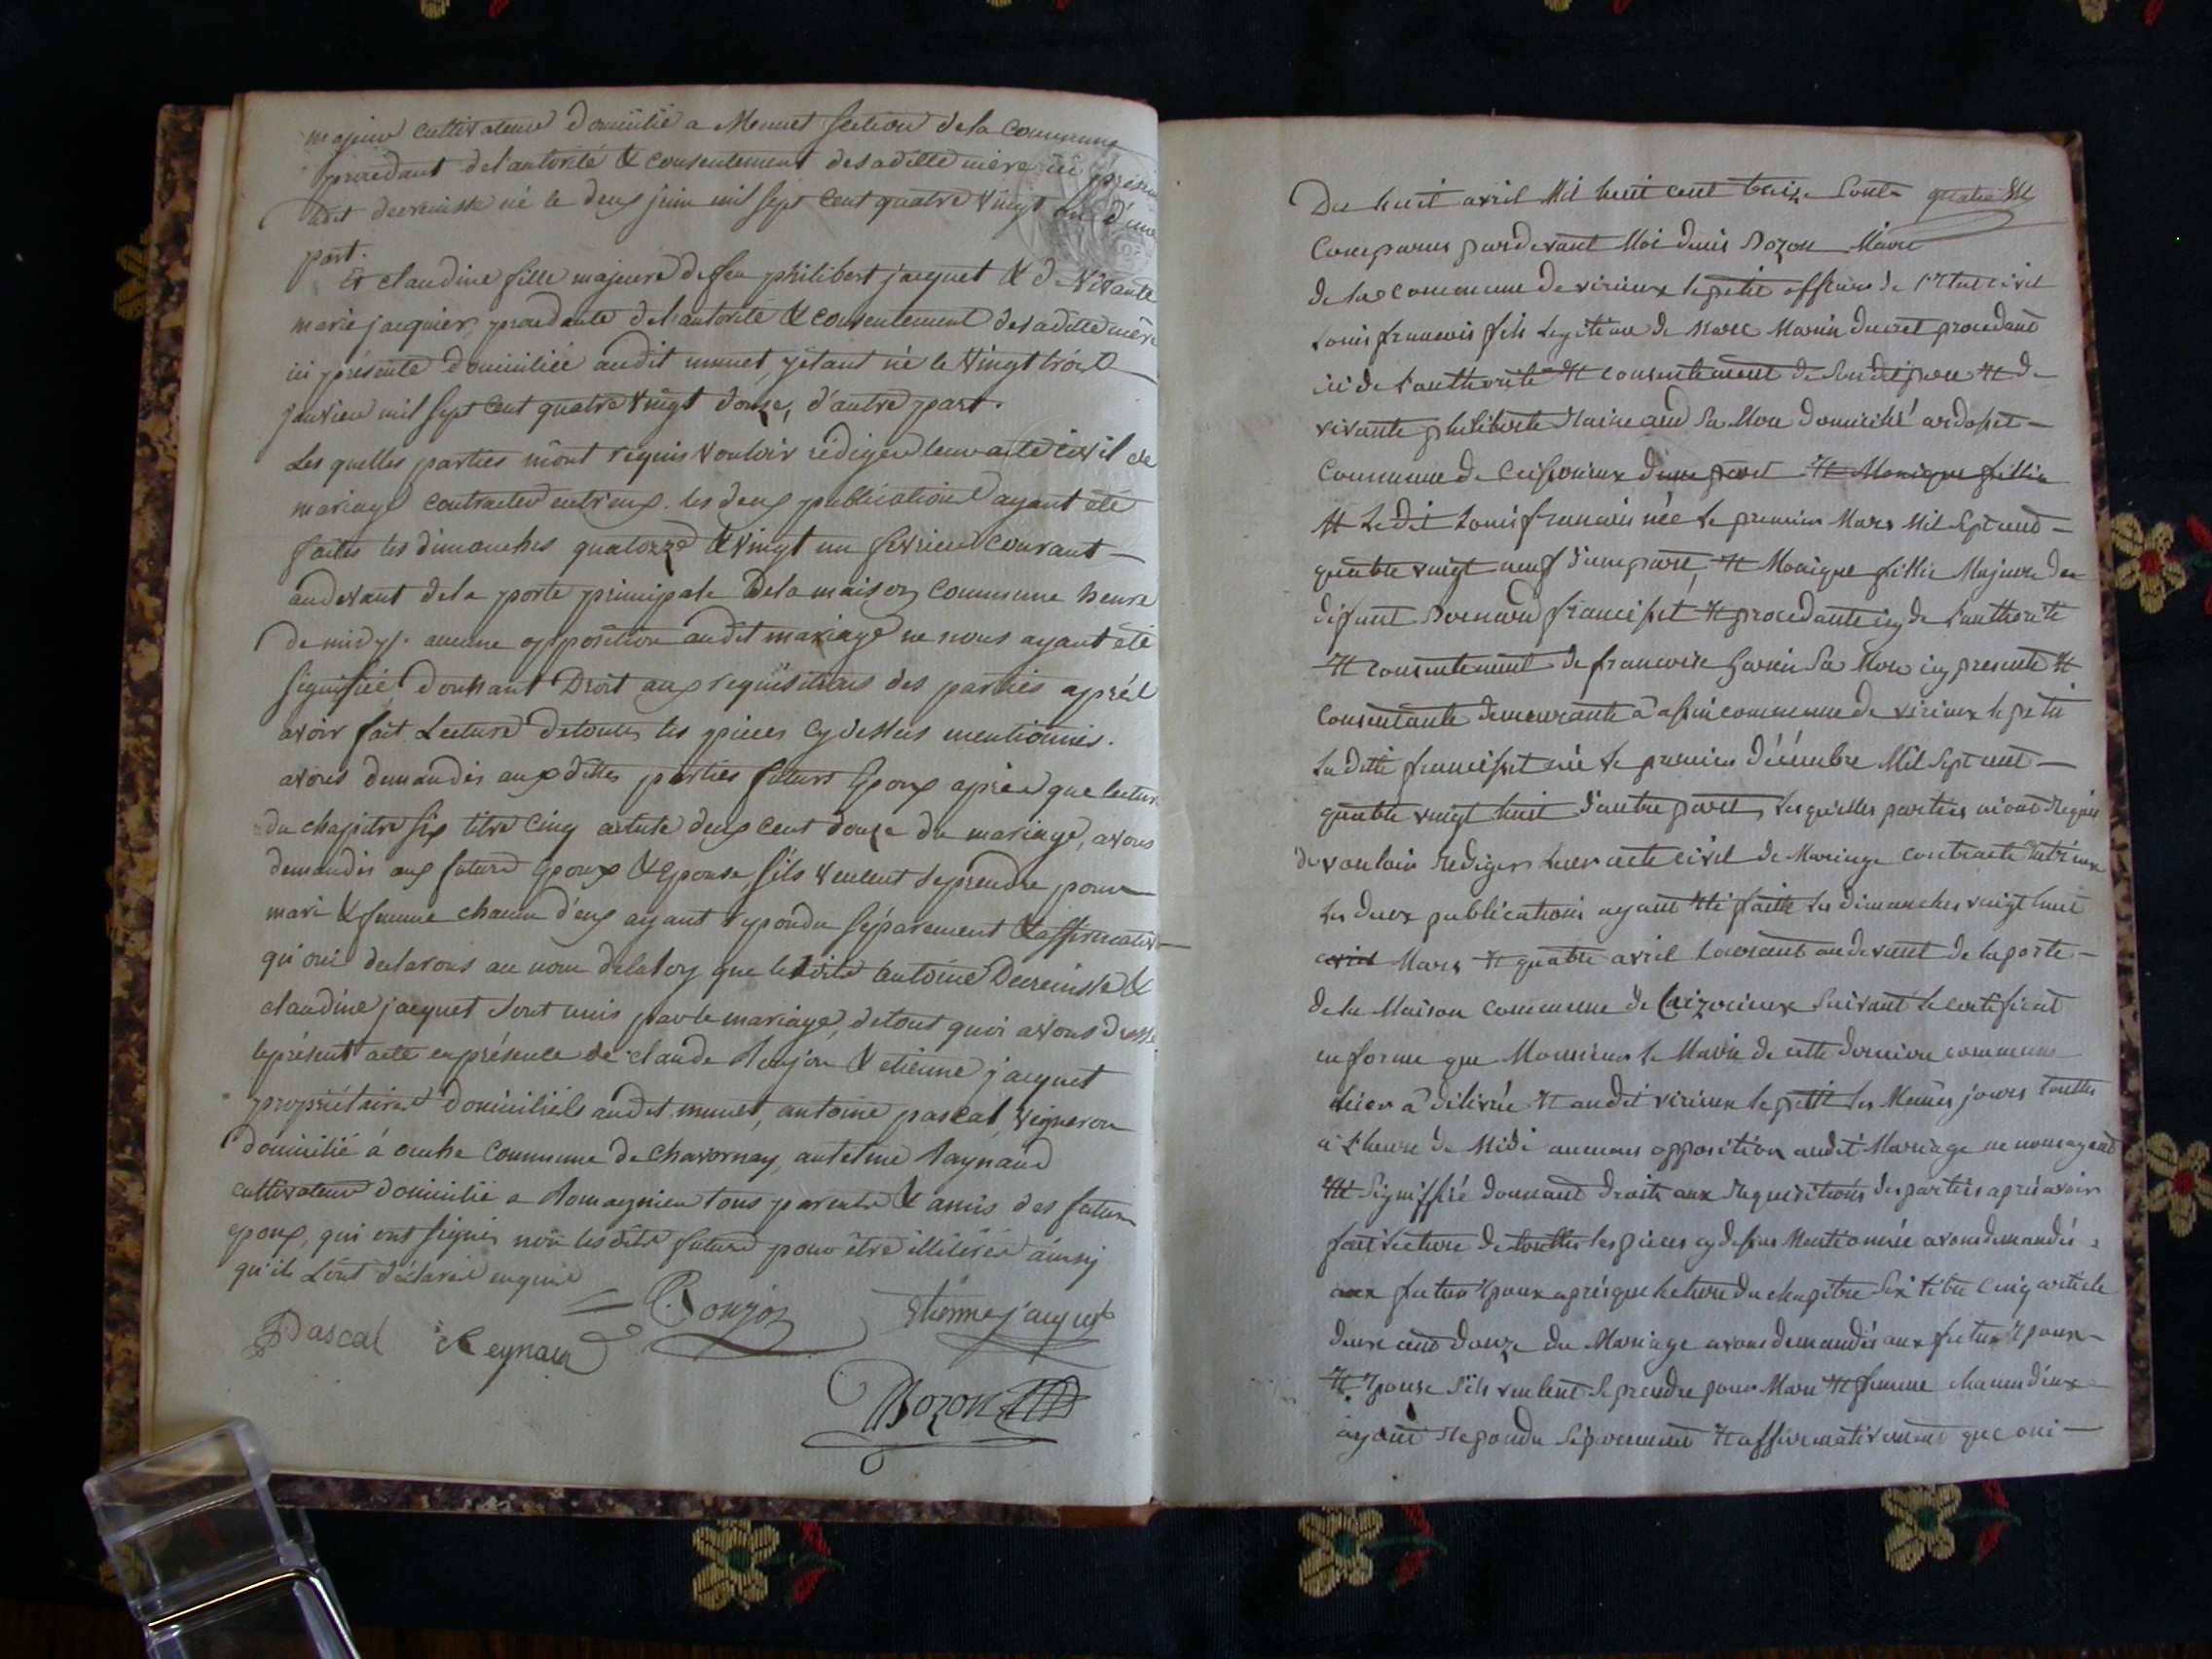 majeur cultivateur domicilié a Munet section de la Commune
procédant de l'autorité & consentement de sa ditte mère ici présente
ledit decreinsse né le deux juin mil sept cent quatre vingt d'une
part.
Et claudine fille majeure de feu philibert jacquet & de vivante
marie jacquier, procédante de l'autorité & consentement de sa ditte mère
ici présente domiciliée audit munet, y étant né le vingt trois
janvier mil sept cent quatre vingt douze, d'autre part.
Les quelles parties m'ont réquis vouloir rédiger leur acte civil de
mariage contracter entr'eux. les deux publications ayant été
faites les dimanches quatorze & vingt un fevrier courant
au devant de la porte principale de la maison Commune heure
de midy. aucune opposition audit mariage ne nous ayant été
signifiée, donnant Droit aux requisitions des parties après
avoir fait Lecture de toutes les pièces cy dessus mentionnées.
avons demandés aux dittes parties futurs Epoux après que lecture
du chapitre six titre cinq article deux cent douze du mariage, avons
demandés aux futurs Epoux & Epouse s'ils veulent se prendre pour
mari & femme chacun d'eux ayant repondu séparement & affirmativ
qu'oui declarons au nom de la loy que lesdits antoine Decreinsse &
claudine jacquet sont unis par le mariage, de tout quoi avons dressé
le présent acte en présence de claude Roujon & etienne jacquet
propriétaires domiciliés audit munet, antoine pascal, vigneron
domicilié à ouche Commune de Chavornay, antelme Raynaud
cultivateur domicilié a Romagnieu tous parents & amis des futurs
epoux, qui ont signés non lesdits futurs pour être illitérés ainsy
qu'ils L'ont déclarés enquis
C. Roujon Etienne jacquet
Pascal Reynaud
Bozon
Du huit avril Mil huit cent treize Sont quatre
Comparus pardevant Moi denis Bozon Maire
de la commune de virieux le petit officier de l'Etat civil
Louis françois fils Legitime de Marc Marin ducret procedant
ici de l'authorité Et consentement de Son dit pere Et de
vivante philiberte Sa Mere domicilié
Commune de Ceisorieux d'une part Et Monique fillie
Et Ledit Louis françois née Le premier Mars Mil Sept cend
quatre vingt neuf d'une part, Et Monique fillie Majeure de
défunt Bernard francisset Et procedante icy de l'authorité
Et consentement de francoise Sa Mere icy presente Et
Consentante demeurante à assin commune de virieux le petit
La ditte francisset née Le premier décembre Mil Sept cent
quatre vingt huit d'autre part, Les quelles parties m'ont Requis
de vouloir Rediger Leur acte civil de Mariage contracté Entr'eux
Les deux publications ayant Eté faitte Les dimanches vingt huit
avril Mars Et quatre avril Courant au devant de la porte
de la Maison commune de Ceizerieux Suivant Le certificat
en forme que Monsieur Le Maire de cette derniere commune
hier à délivrée Et audit virieux le petit Les Memes jours touttes
à L'heure de Midi aucunes opposition audit Mariage ne nous ayant
Eté Signiffié donnant droits aux Requisitions des parties après avoir
fait Lecture de touttes Les pieces cy dessus Mentionnée avons demandés
aux futur Epoux après que Lecture du chapitre Six titre Cinq article
deux cens douze du Mariage avons demandés aux futur Epoux
Et Epouse S'ils veulent Se prendre pour Mari Et femme chacun d'eux
ayant Repondu Séparement Et affirmativement que oui